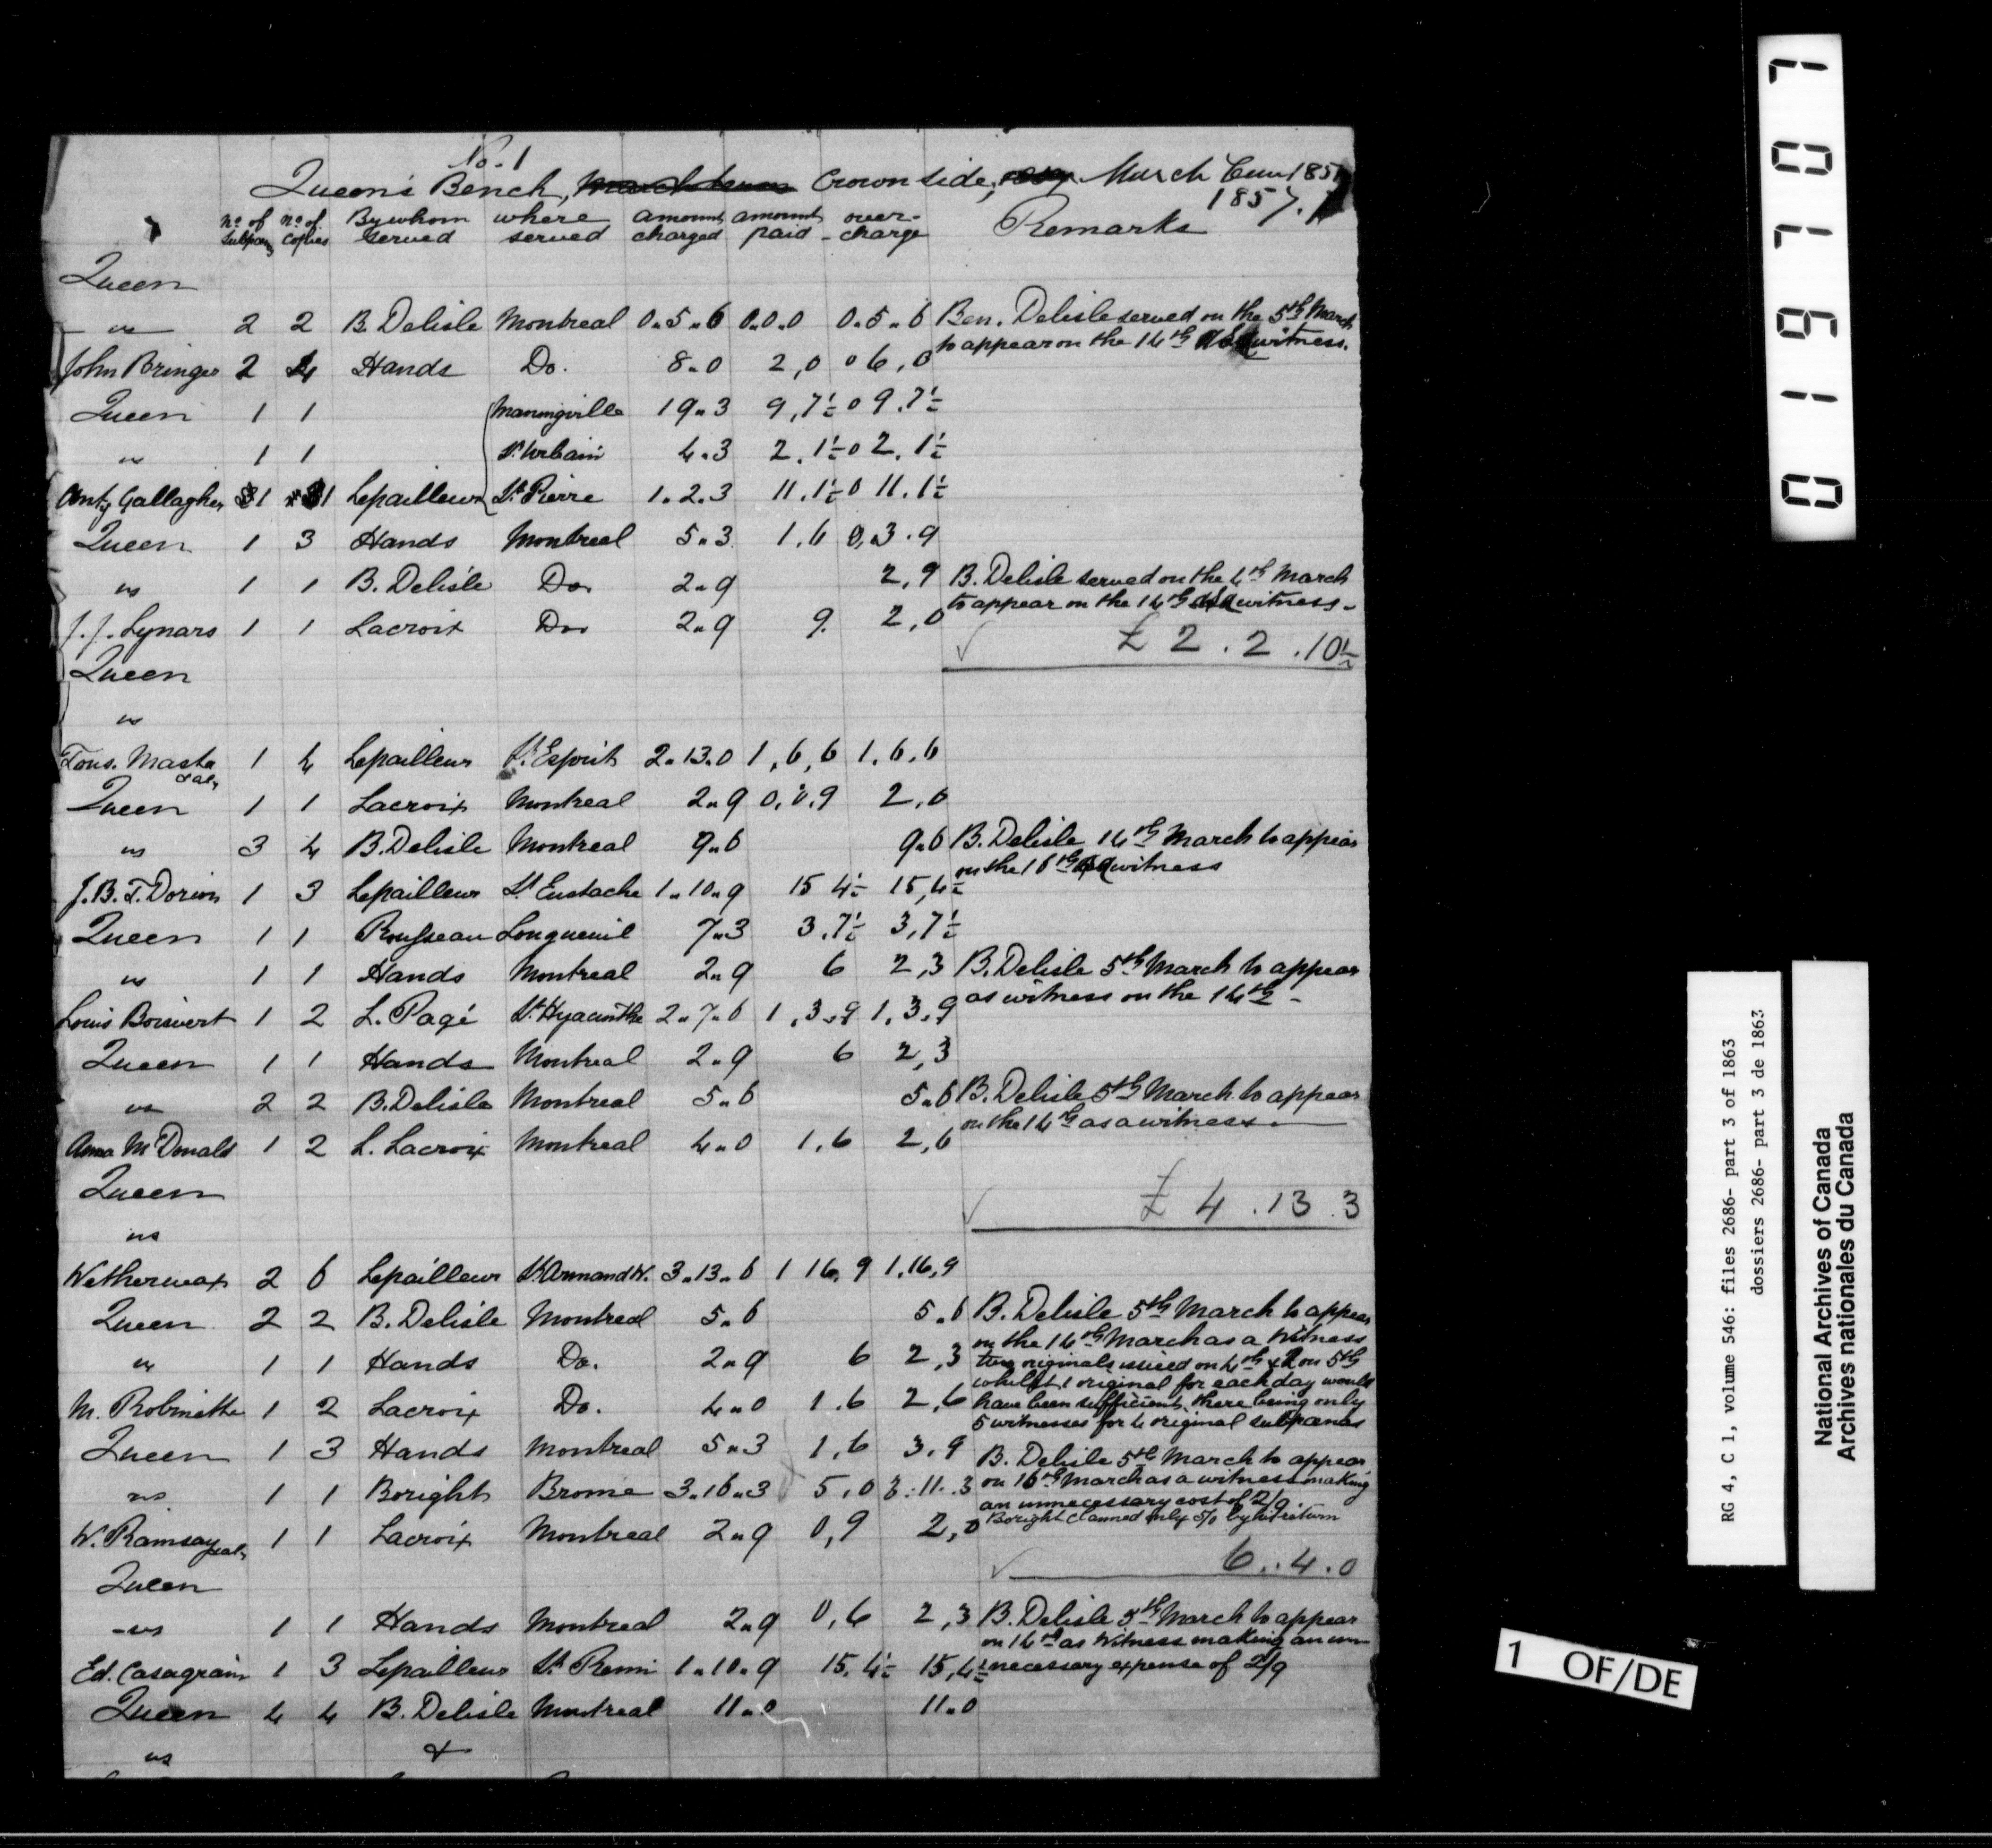 No. 1
Queen's Bench, March term Crown side, March Term 1857
1857.
no. of subpoenas no. of copies By whom served where served amount charged amount paid over-charge Remarks
Queen
vs 2 2 B. Delisle Montreal 0.5.6 0.0.0 0.5.6 Ben. Delisle served on the 5th March
to appear on the 14th as a witness.
John Bringer 2 4 Hands Do. 8.0 2,0 0 6,0
Queen 1 1 Manningville 19.3 9,7½ 0 9.7½
vs 1 1 St. Urbain 4.3 2.1½ 0 2.1½
Anty Gallagher 1 1 Lepailleur St. Pierre 1.2.3 11.1½ 0 11.1½
Queen 1 3 Hands Montreal 5.3 1.6 0.3.9
vs 1 1 B. Delisle Do. 2.9 2,9 B. Delisle served on the 4th March
to appear on the 14th as a witness.
J. J. Lynars 1 1 Lacroix Do. 2.9 9. 2,0
£ 2.2.10½
Queen
vs
Tous. Masta & al. 1 4 Lepailleur St. Esprit 2.13.0 1,6,6 1.6.6
Queen 1 1 Lacroix Montreal 2.9 0,0,9 2.0
vs 3 4 B. Delisle Montreal 9.6 9.6 B. Delisle 14th March to appear
on the 16th as a witness
J. B. T. Dorion 1 3 Lepailleur St. Eustache 1.10.9 15 4½ 15,4½
Queen 1 1 Rousseau Longueuil 7.3 3.7½ 3,7½
vs 1 1 Hands Montreal 2.9 6 2,3 B. Delisle 5th March to appear
as witness on the 14th
Louis Boisvert 1 2 L. Pagé St. Hyacinthe 2.7.6 1,3.9 1.3.9
Queen 1 1 Hands Montreal 2.9 6 2,3
vs 2 2 B. Delisle Montreal 5.6 5.6 B. Delisle 5th March to appear
on the 14th as a witness.
Anna McDonald 1 2 L. Lacroix Montreal 4.0 1.6 2,6
Queen
£ 4.13.3
vs
Wetherwax 2 6 Lepailleur St. Armand W. 3.13.6 1 16,9 1,16,9
Queen 2 2 B. Delisle Montreal 5.6 5.6 B. Delisle 5th March to appear
on the 14th March as a Witness
vs 1 1 Hands Do. 2.9 6 2,3 two originals issued on 4th & 2 on 5th
whilst 1 original for each day would
M. Robinette 1 2 Lacroix Do. 4.0 1.6 2,6 have been sufficient, there being only
5 witnesses for 4 original subpœnas
Queen 1 3 Hands Montreal 5.3 1,6 3.9 B. Delisle 5th March to appear
vs 1 1 Boright Brome 3.16.3 5,0 3.11.3 on 16th March as a witness making
an unnecessary cost of 2/9
Boright claimed only 5/0 by his return
W. Ramsay & al. 1 1 Lacroix Montreal 2.9 0,9 2,0
6.4.0
Queen
vs 1 1 Hands Montreal 2.9 0,6 2,3 B. Delisle 5th March to appear
on 14th as Witness making an un-
Ed. Casagrain 1 3 Lepailleur St. Remi 1.10.9 15.4½ 15,4½ necessary expense of 2/9
Queen 4 4 B. Delisle Montreal 11.0 11.0
vs &
019707
RG 4, C 1, volume 546: files 2686- part 3 of 1863
dossiers 2686- part 3 de 1863
National Archives of Canada
Archives nationales du Canada
1 OF/DE